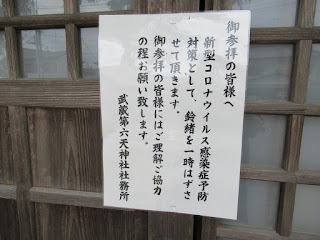 御参拝の皆様へ
新型コロナウイルス感染症予防
対策として、鈴緒を一時はずさ
せて頂きます。
御参拝の皆様にはご理解ご協力
の程お願い致します。
武蔵第六天神社社務所